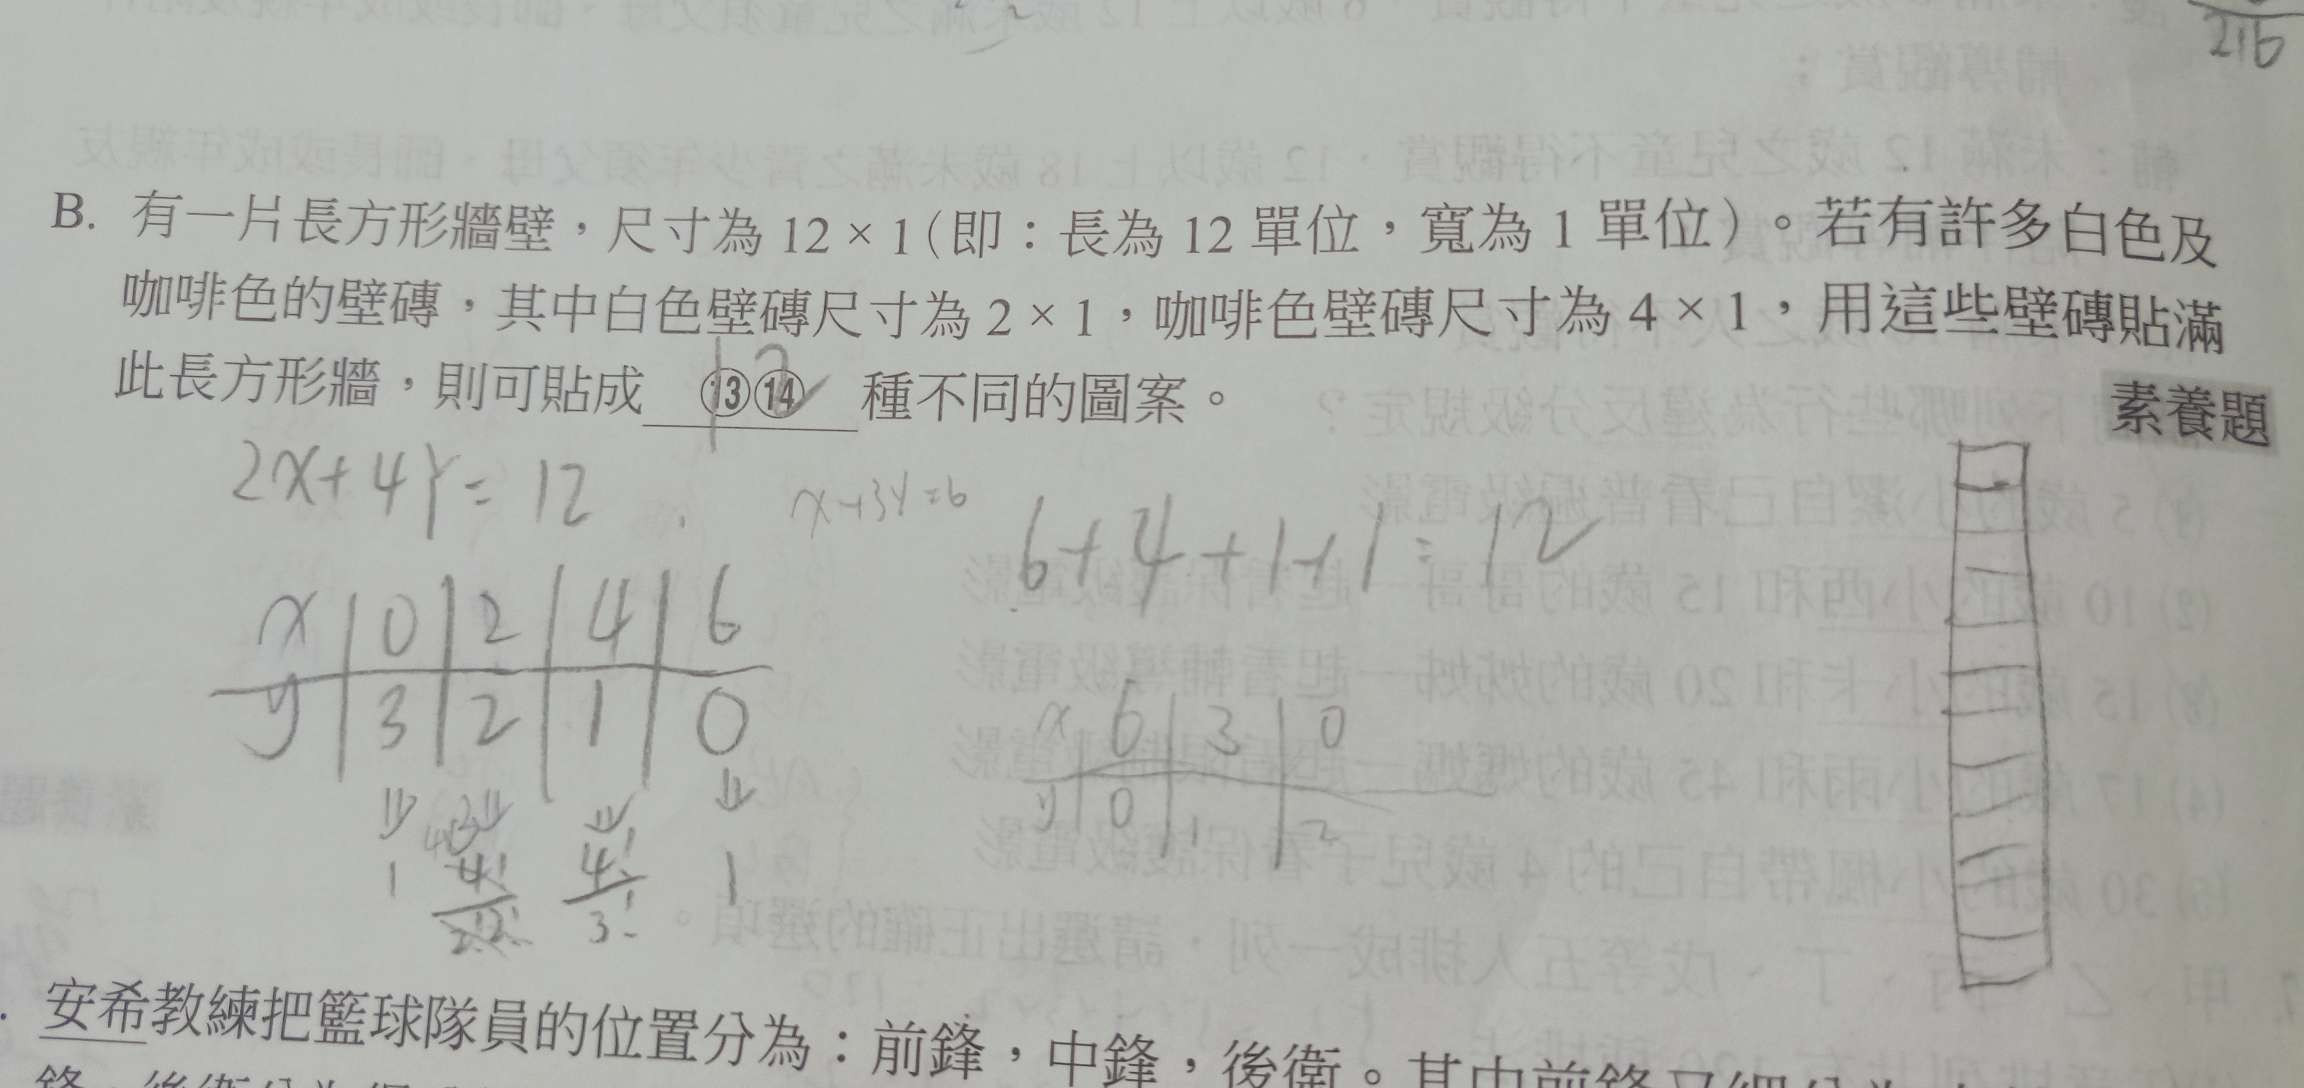 216
B. 有一片長方形牆壁，尺寸為 12 × 1（即：長為 12 單位，寬為 1 單位）。若有許多白色及
咖啡色的壁磚，其中白色壁磚尺寸為 2 × 1，咖啡色壁磚尺寸為 4 × 1，用這些壁磚貼滿
此長方形牆，則可貼成 ⑬⑭ 種不同的圖案。
12
素養題
2x+4y=12
x+3y=6
6+4+1+1=12
x 0 2 4 6
y 3 2 1 0
x 6 3 0
y 0 1 2
1 4!/2!2! 4!/3! 1
安希教練把籃球隊員的位置分為：前鋒，中鋒，後衛。其中前鋒又細分為